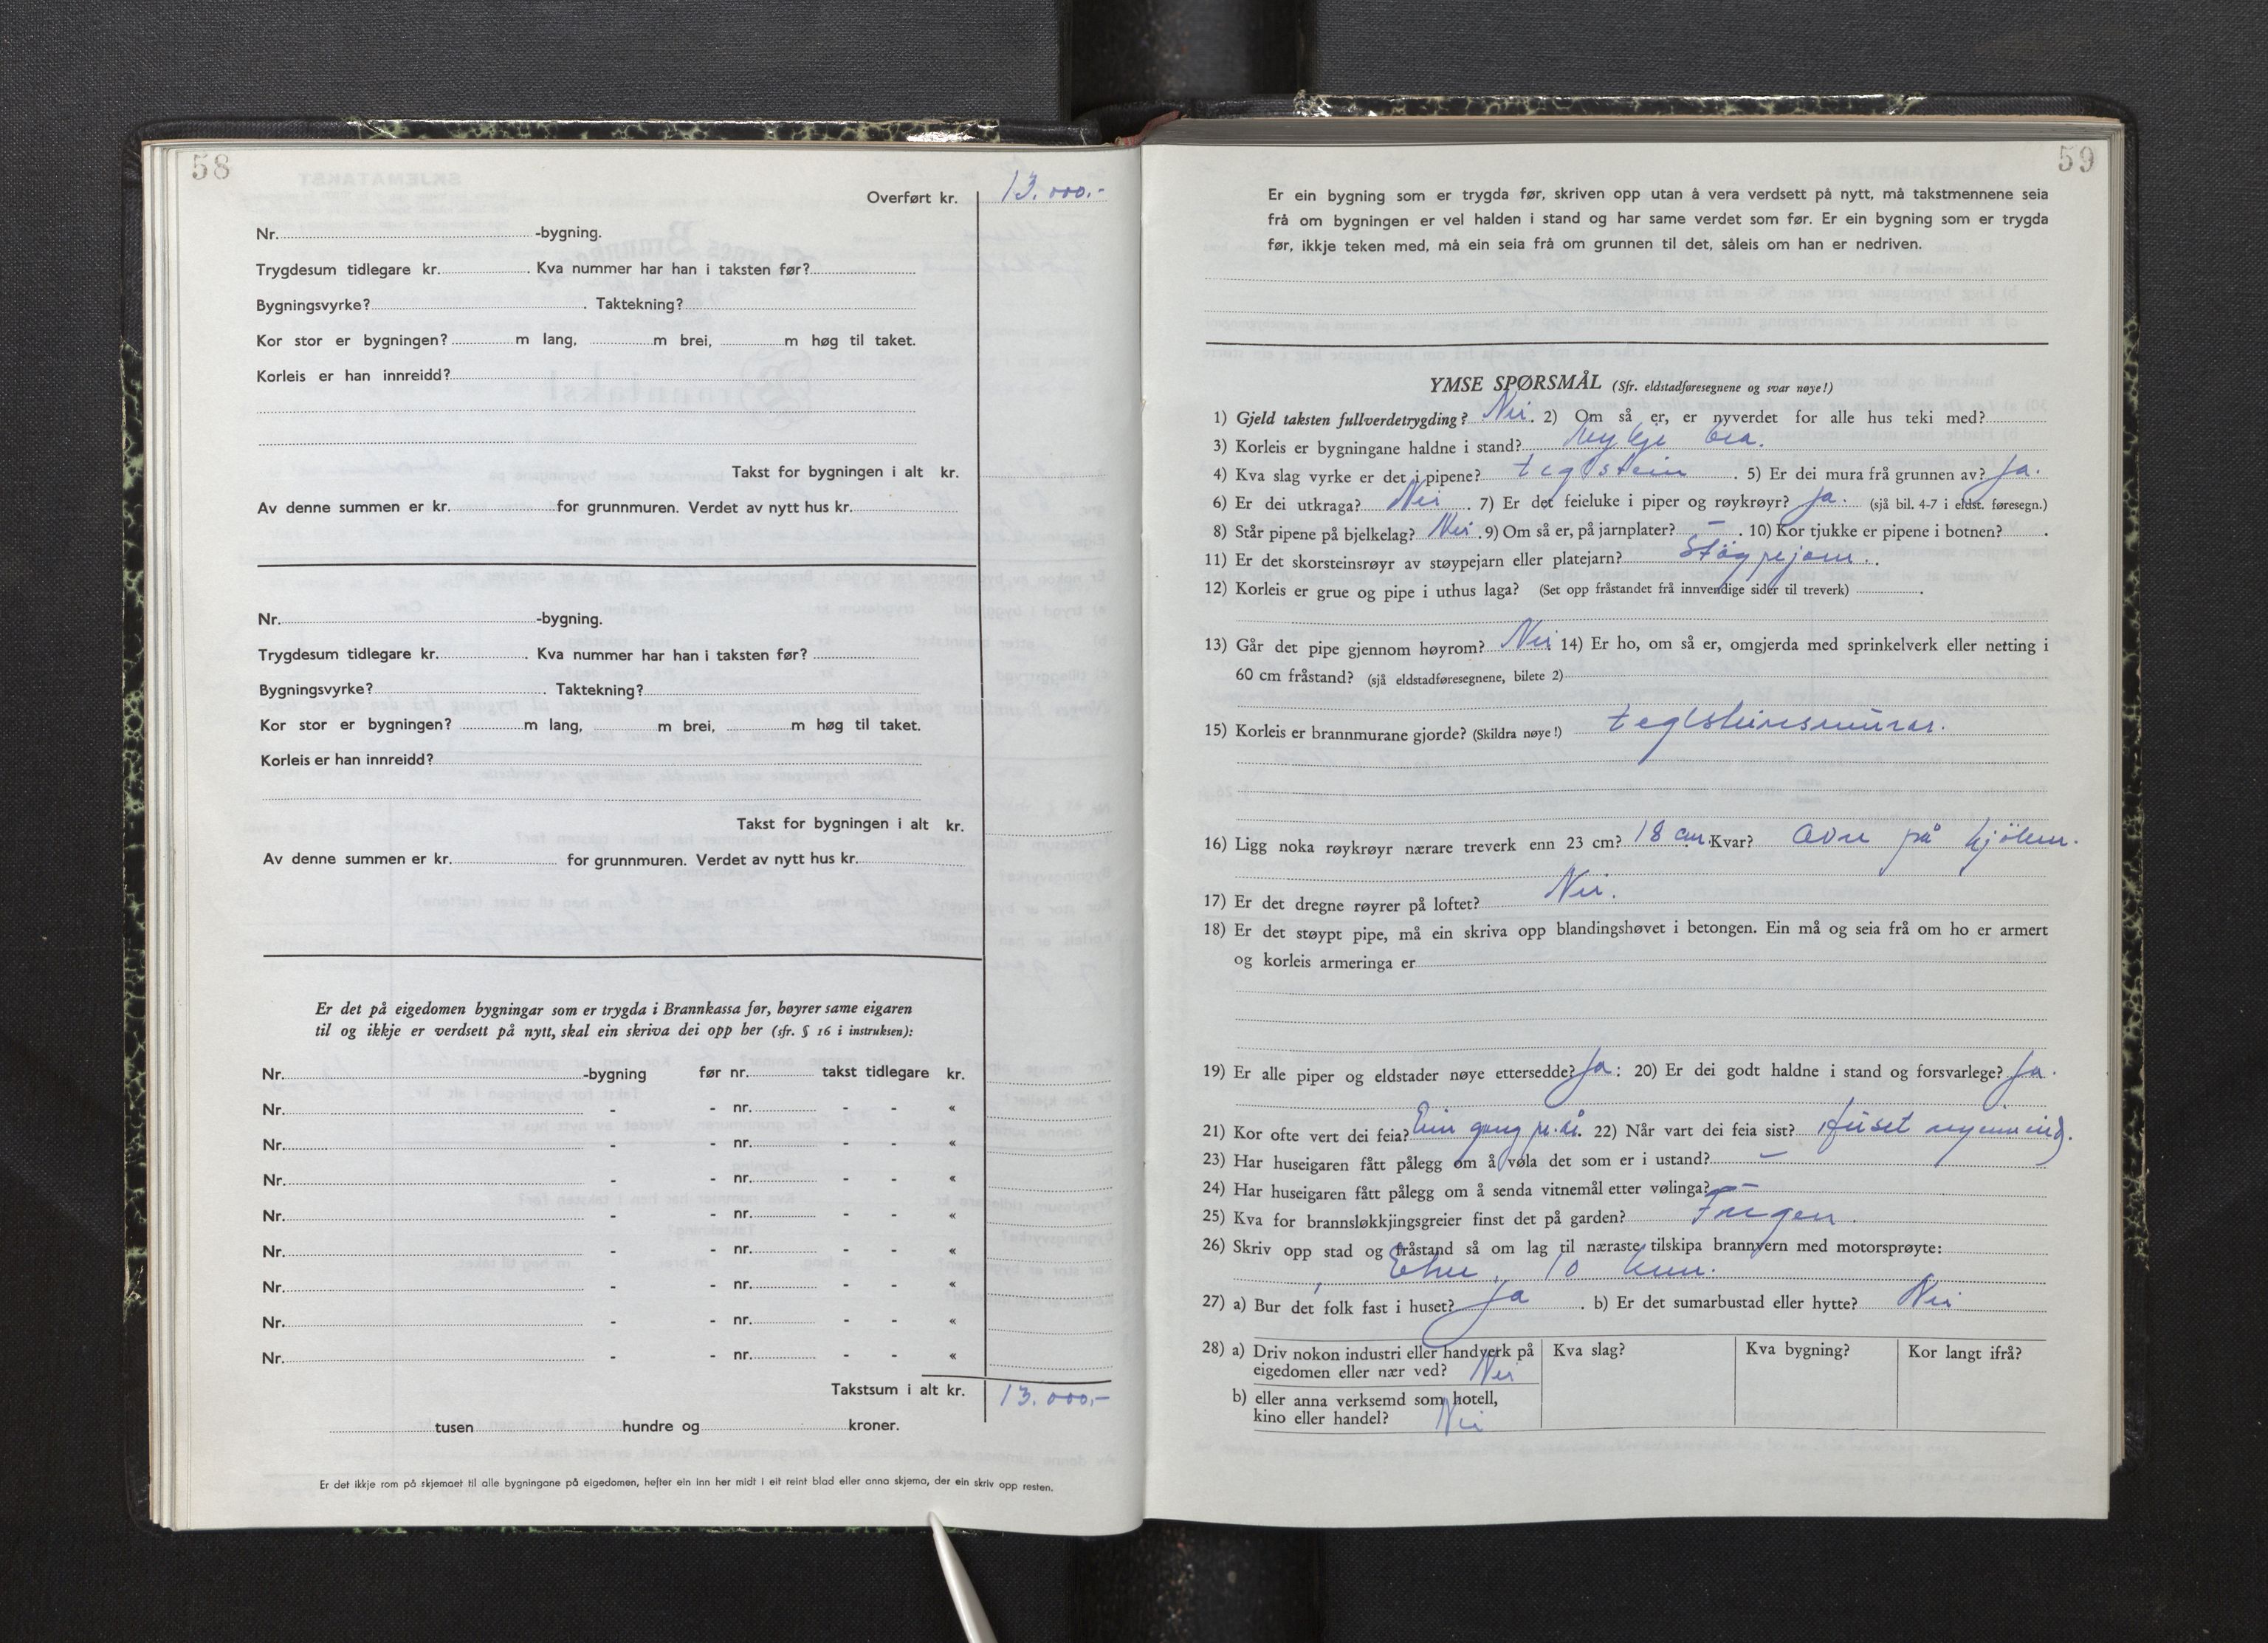 58
Overført kr. 13.000,-
Nr. -bygning.
Trygdesum tidlegare kr. . Kva nummer har han i taksten før?
Bygningsvyrke? . Taktekning?
Kor stor er bygningen? m lang, m brei, m høg til taket.
Korleis er han innreidd?
Takst for bygningen i alt kr.
Av denne summen er kr. for grunnmuren. Verdet av nytt hus kr.
Nr. -bygning.
Trygdesum tidlegare kr. . Kva nummer har han i taksten før?
Bygningsvyrke? . Taktekning?
Kor stor er bygningen? m lang, m brei, m høg til taket.
Korleis er han innreidd?
Takst for bygningen i alt kr.
Av denne summen er kr. for grunnmuren. Verdet av nytt hus kr.
Er det på eigedomen bygningar som er trygda i Brannkassa før, høyrer same eigaren
til og ikkje er verdsett på nytt, skal ein skriva dei opp her (sfr. § 16 i instruksen):
Nr. -bygning før nr. takst tidlegare kr.
Nr. - - nr. - - «
Nr. - - nr. - - «
Nr. - - nr. - - «
Nr. - - nr. - - «
Nr. - - nr. - - «
Nr. - - nr. - - «
Nr. - - nr. - - «
Nr. - - nr. - - «
Takstsum i alt kr. 13.000,-
tusen hundre og kroner.
Er det ikkje rom på skjemaet til alle bygningane på eigedomen, hefter ein inn her midt i eit reint blad eller anna skjema, der ein skriv opp resten.
59
Er ein bygning som er trygda før, skriven opp utan å vera verdsett på nytt, må takstmennene seia
frå om bygningen er vel halden i stand og har same verdet som før. Er ein bygning som er trygda
før, ikkje teken med, må ein seia frå om grunnen til det, såleis om han er nedriven.
YMSE SPØRSMÅL (Sfr. eldstadføresegnene og svar nøye!)
1) Gjeld taksten fullverdetrygding? Nei. 2) Om så er, er nyverdet for alle hus teki med?
3) Korleis er bygningane haldne i stand? Mykje bra.
4) Kva slag vyrke er det i pipene? teglstein . 5) Er dei mura frå grunnen av? Ja.
6) Er dei utkraga? Nei . 7) Er det feieluke i piper og røykrøyr? Ja. (sjå bil. 4-7 i eldst. føresegn.)
8) Står pipene på bjelkelag? Nei . 9) Om så er, på jarnplater? — . 10) Kor tjukke er pipene i botnen? .
11) Er det skorsteinsrøyr av støypejarn eller platejarn? Støypejarn.
12) Korleis er grue og pipe i uthus laga? (Set opp fråstandet frå innvendige sider til treverk) .
13) Går det pipe gjennom høyrom? Nei 14) Er ho, om så er, omgjerda med sprinkelverk eller netting i
60 cm fråstand? (sjå eldstadføresegnene, bilete 2)
15) Korleis er brannmurane gjorde? (Skildra nøye!) teglsteinsmurar.
16) Ligg noka røykrøyr nærare treverk enn 23 cm? 18 cm. Kvar? Ovn på kjøken.
17) Er det dregne røyrer på loftet? Nei.
18) Er det støypt pipe, må ein skriva opp blandingshøvet i betongen. Ein må og seia frå om ho er armert
og korleis armeringa er
19) Er alle piper og eldstader nøye ettersedde? Ja : 20) Er dei godt haldne i stand og forsvarlege? Ja.
21) Kor ofte vert dei feia? Ein gong pr. år. 22) Når vart dei feia sist? Huset
23) Har huseigaren fått pålegg om å vøla det som er i ustand? —
24) Har huseigaren fått pålegg om å senda vitnemål etter vølinga? —
25) Kva for brannsløkkjingsgreier finst det på garden? Ingen.
26) Skriv opp stad og fråstand så om lag til næraste tilskipa brannvern med motorsprøyte:
Etne, 10 km.
27) a) Bur det folk fast i huset? Ja . b) Er det sumarbustad eller hytte? Nei
28) a) Driv nokon industri eller handverk på
eigedomen eller nær ved? Nei
Kva slag? Kva bygning? Kor langt ifrå?
b) eller anna verksemd som hotell,
kino eller handel? Nei